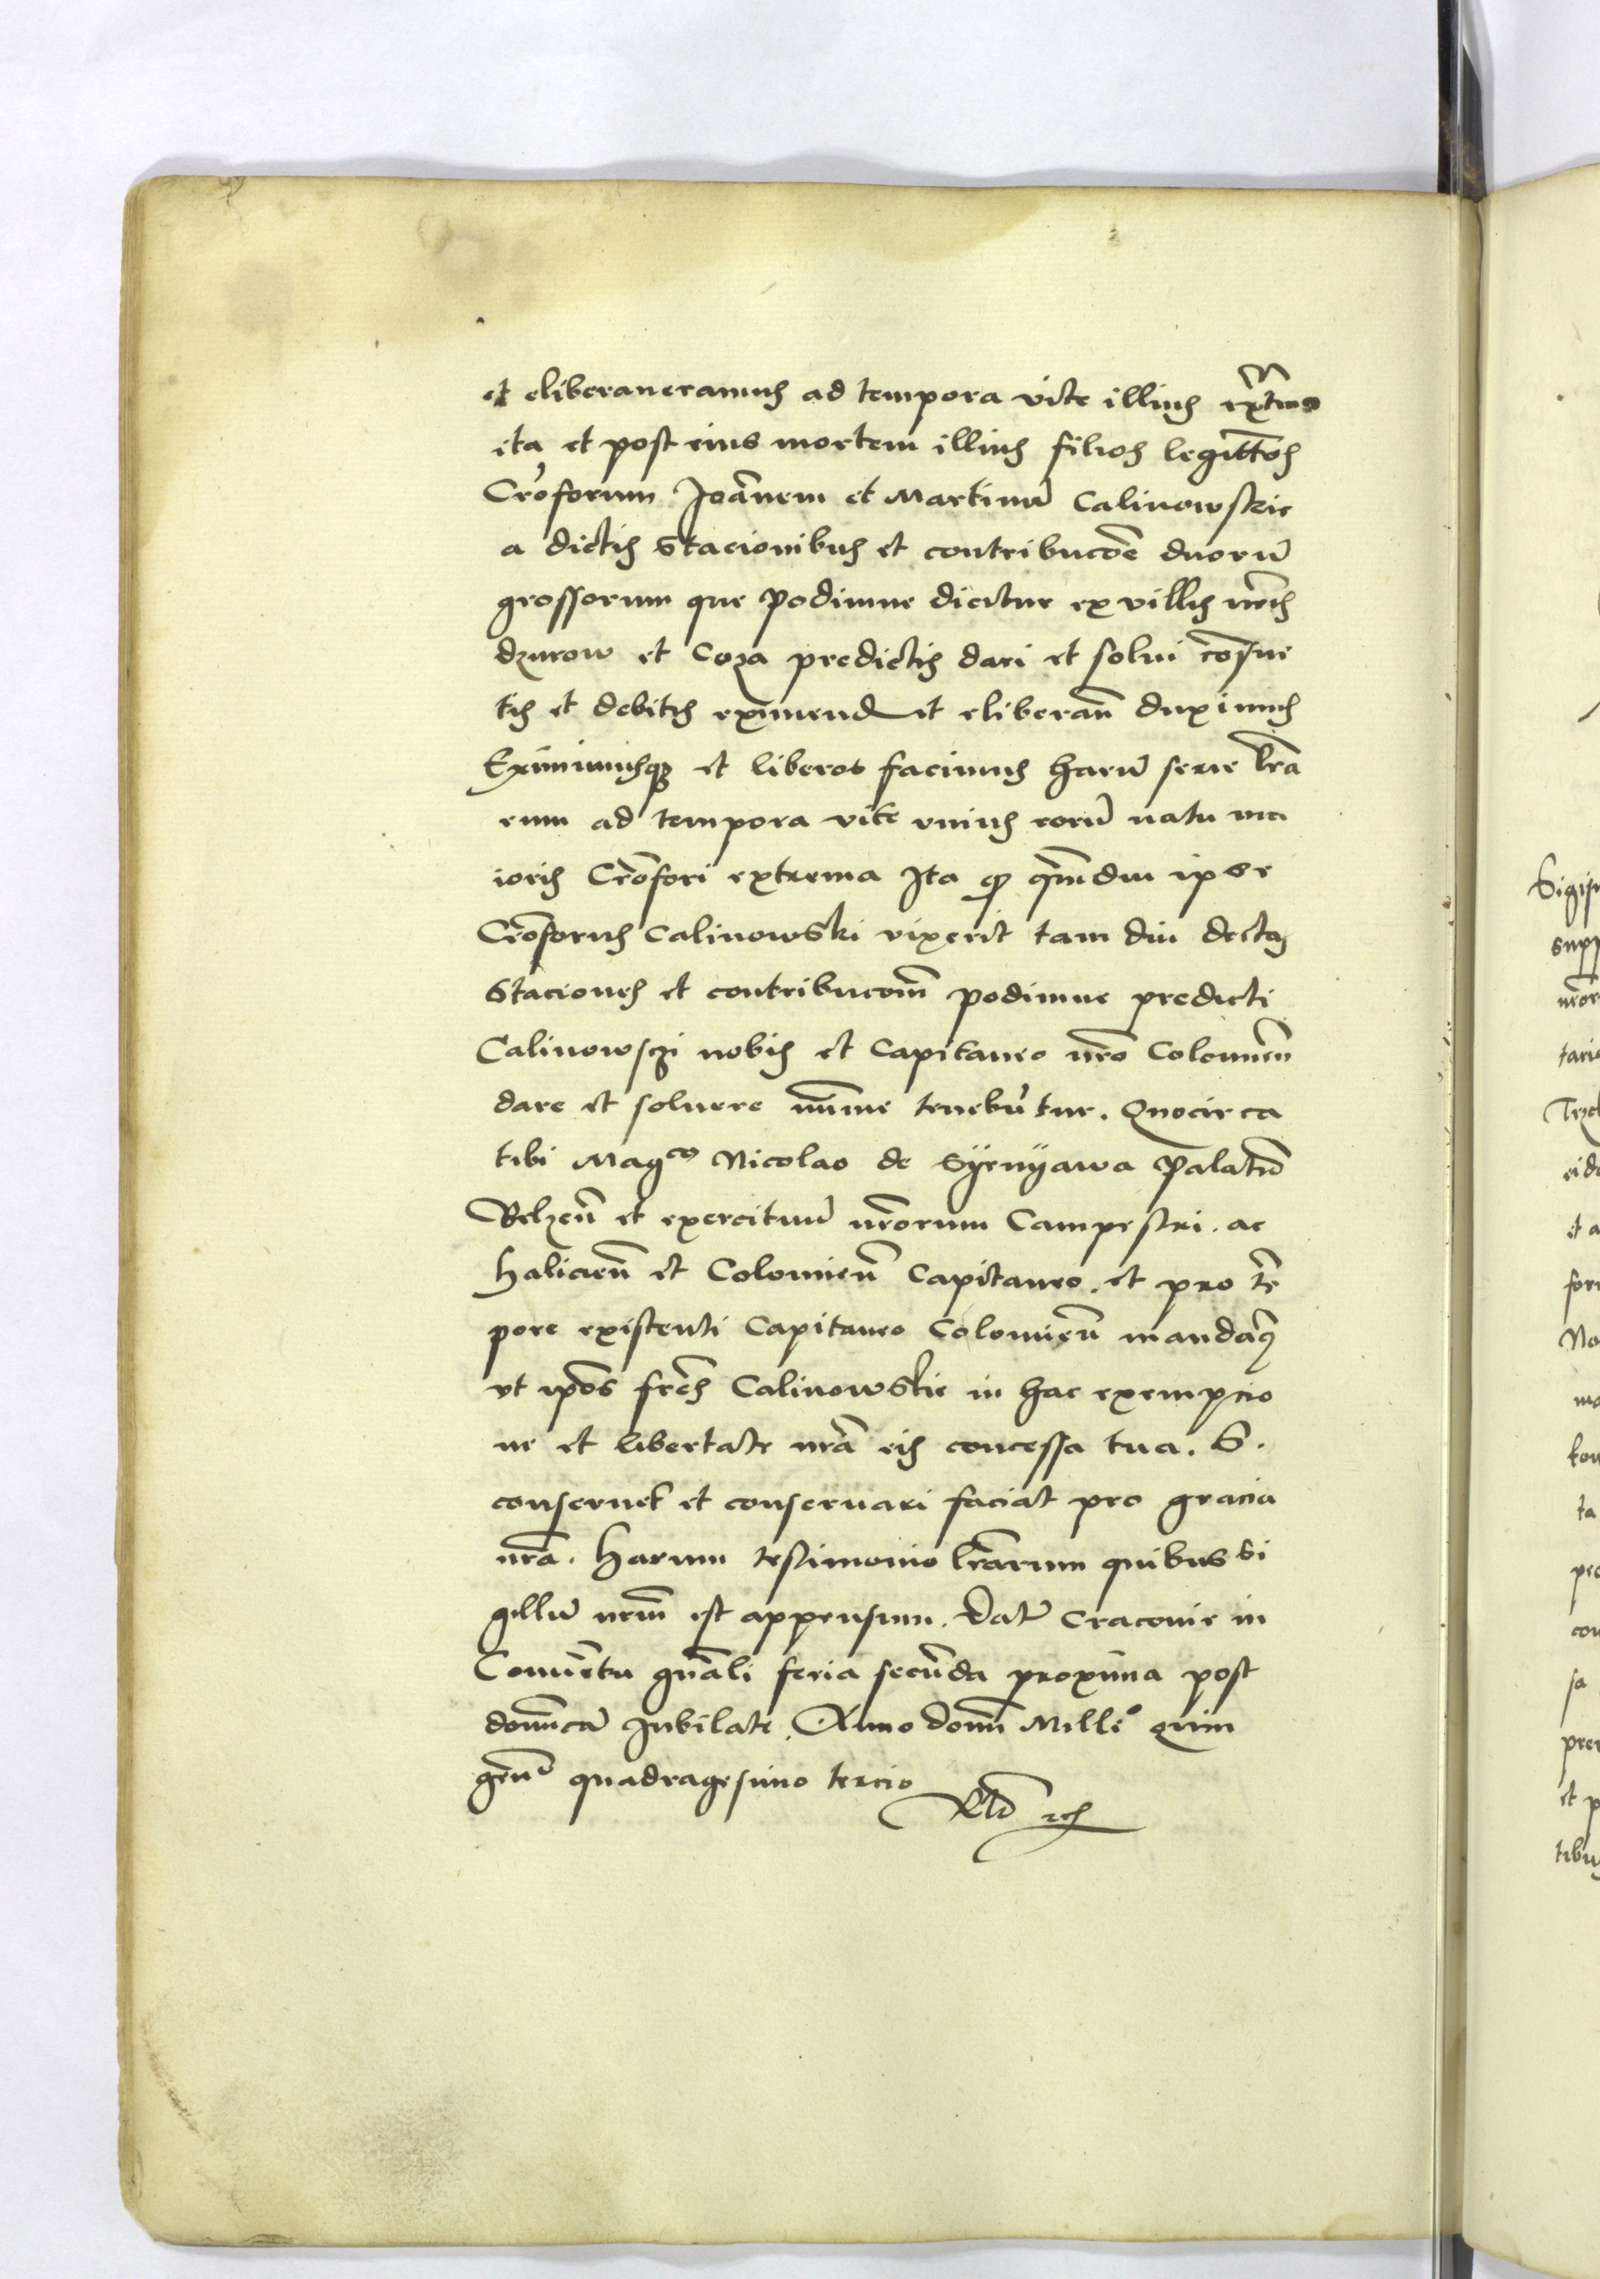 et eliberaueramus ad tempora vite illius extrema
ita et post eius mortem illius filios legittos
Croforum Joannem et Martinu Calinowskie
a dictis Stacionibus et contribucoe duoru
grossorum que Podimne dicitur ex villis nris
dzurow et Coza predictis dari et solui consue
tis et debitis eximend et eliberan duximus
Eximimusque et liberos facimus haru serie lra
rum ad tempora vite vnius eoru natu ma
ioris Crofori extrema Ita quod quamdiu ipse
Croforus Calinowski vixerit tam diu dictas
Staciones et contribucom podimne predicti
Calinowszi nobis et Capitaneo nro Colomien
dare et soluere mime tenebutur. Quocirca
tibi Magco Nicolao de Syenyawa Palatio
Belzen et exercituu nrorum Campestri. ac
halicien et Colomien Capitaneo. et pro te
pore existenti Capitaneo Colomien mandamus
vt ipos fres Calinowskie in hac exempcio
ne et libertate nra eis concessa tua. S.
conseruet et conseruari faciat pro gracia
nra. Harum testimonio lrarum quibus si
gillu nrm est appensum. Dat Cracouie in
Conuetu gnali feria secuda proxima post
domica Jubilate. Anno domi Mille quin
gen quadragesimo tercio